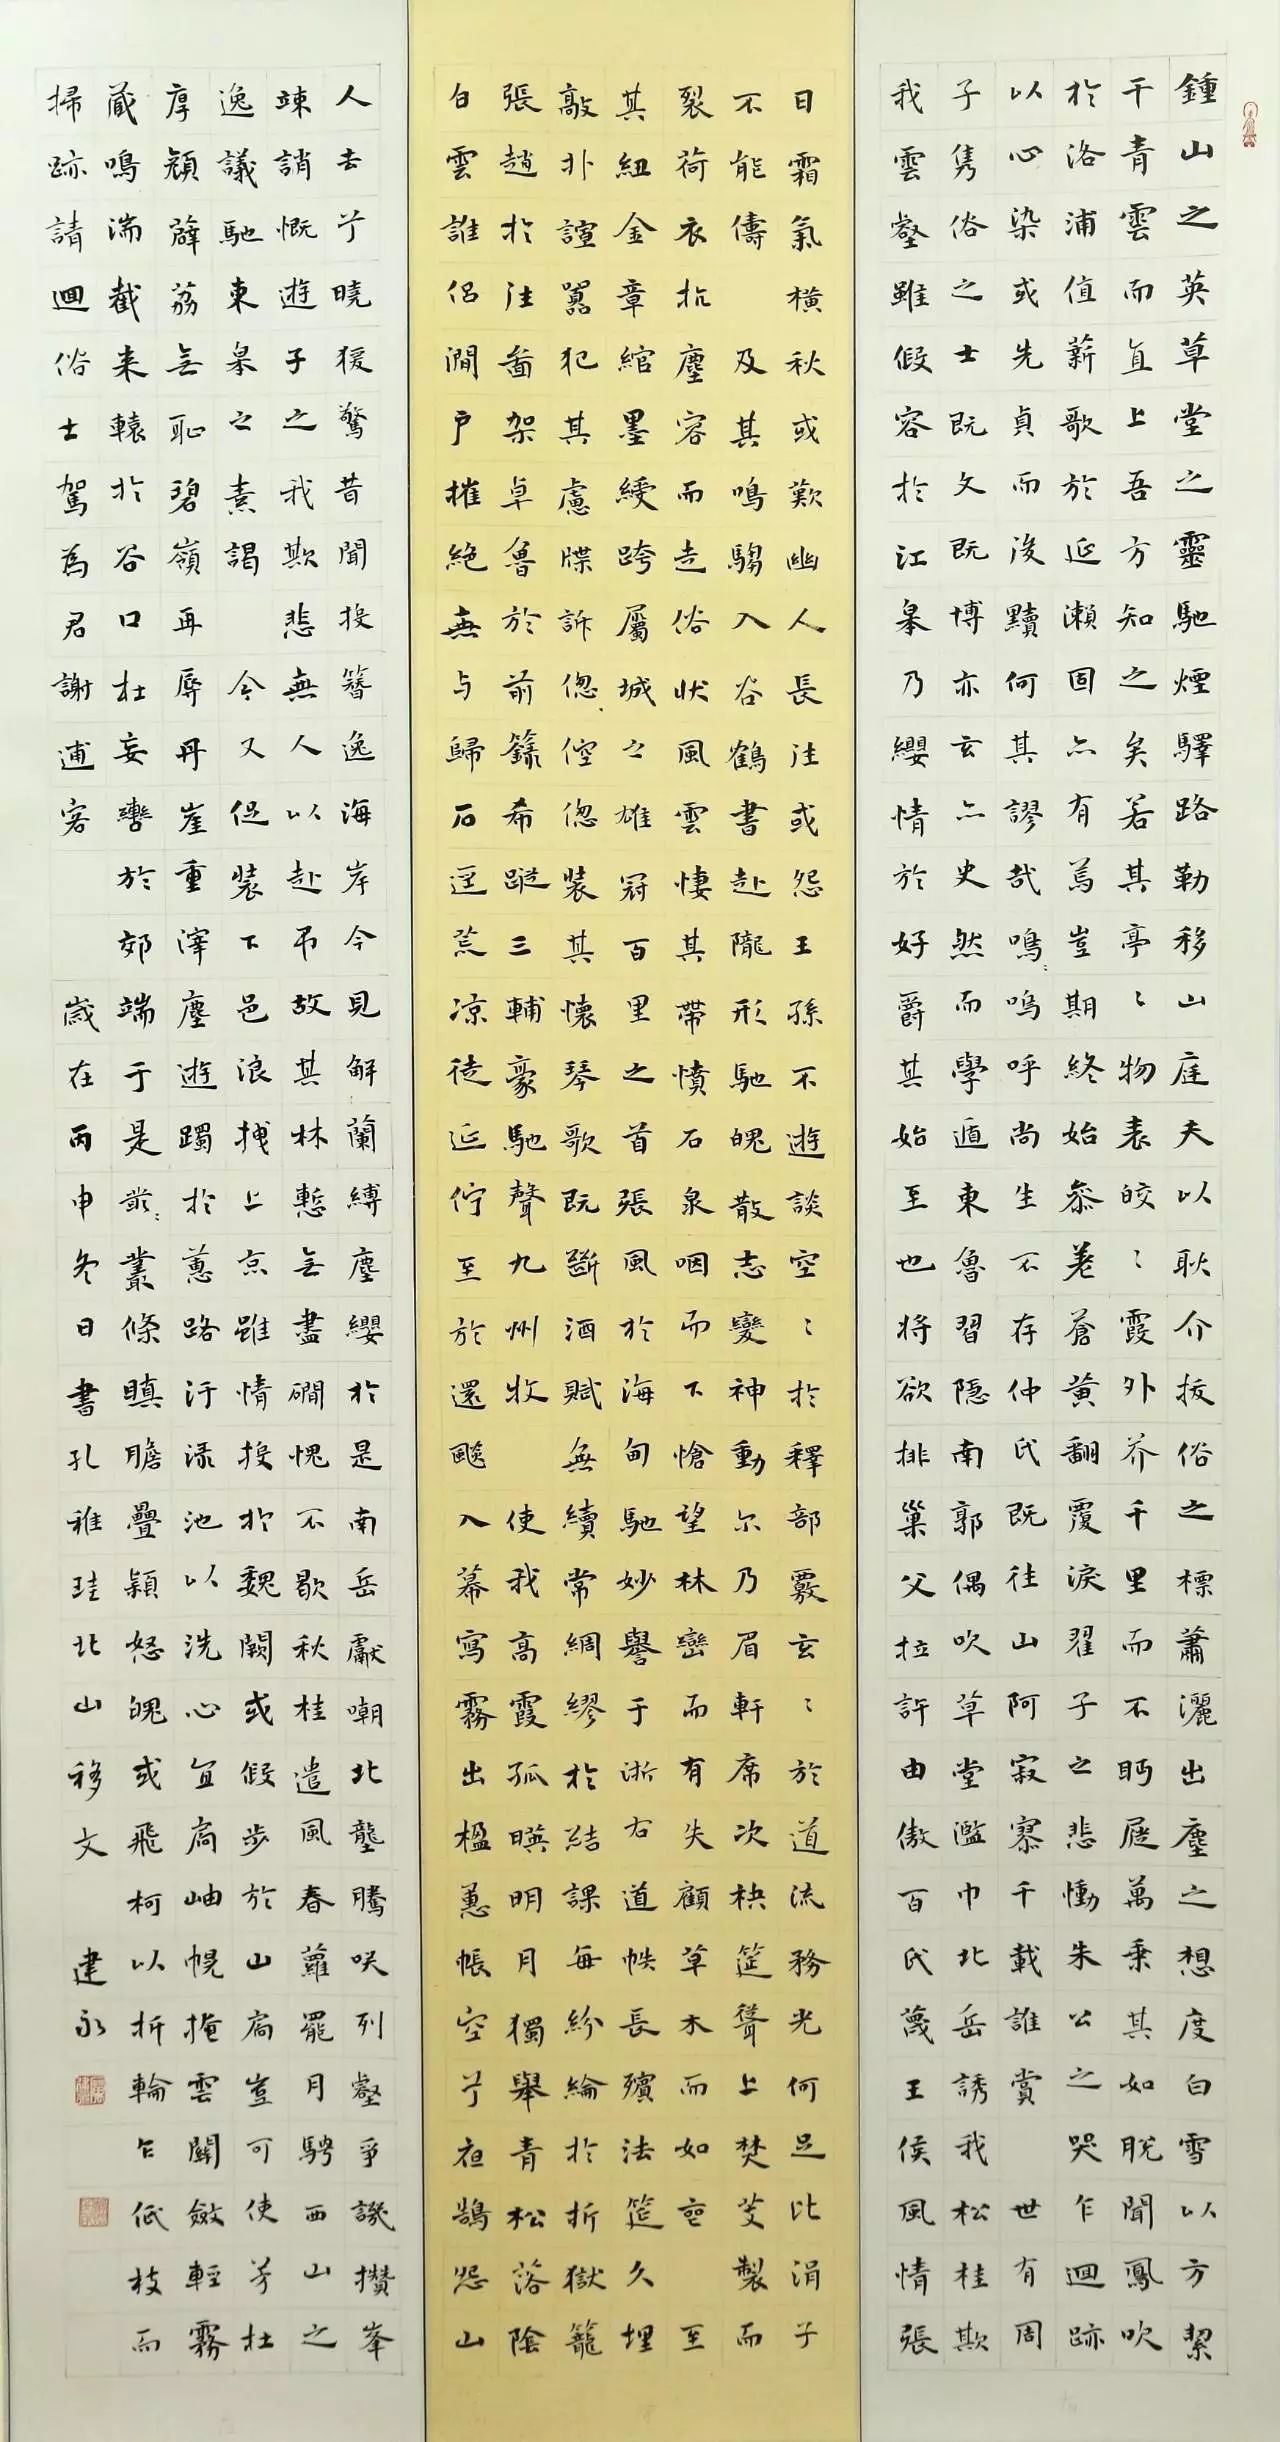 鍾山之英草堂之靈馳煙驛路勒移山庭夫以耿介拔俗之標蕭灑出塵之想度白雪以方絜
干青雲而直上吾方知之矣若其亭〻物表皎〻霞外芥千里而不眄屣萬乘其如脫聞鳳吹
於洛浦值薪歌於延瀨固亦有焉豈期終始參差蒼黃翻覆淚翟子之悲慟朱公之哭乍迴跡
以心染或先貞而後黷何其謬哉鳴嗚呼尚生不存仲氏既往山阿寂寥千載誰賞世有周
子隽俗之士既文既博亦玄亦史然而學遁東魯習隱南郭偶吹草堂濫巾北岳誘我松桂欺
我雲壑雖假容於江皋乃纓情於好爵其始至也將欲排巢父拉許由傲百氏蔑王侯風情張
日霜氣橫秋或歎幽人長往或怨王孫不遊談空〻於釋部覈玄〻於道流務光何足比涓子
不能儔及其鳴騶入谷鶴書赴隴形馳魄散志變神動尔乃眉軒席次袂筵聳上焚芰製而
裂荷衣抗塵容而走俗狀風雲悽其帶憤石泉咽而下愴望林巒而有失顧草木而如喪至
其紐金章綰墨綬跨屬城之雄冠百里之首張風於海甸馳妙譽于浙右道帙長殯法筵久埋
敲扑諠囂犯其慮牒訴傯倥傯裝其懷琴歌既斷酒賦無續常綢繆於結課每紛綸於折獄籠
張趙於往啚架卓魯於前籙希蹤三輔豪馳聲九州牧使我高霞孤暎明月獨舉青松落陰
白雲誰侶澗戶摧絕無与歸石逕荒涼徒延佇至於還飈入幕寫霧出楹蕙帳空兮夜鵠怨山
人去兮曉猨驚昔聞投簪逸海岸今見解蘭縛塵纓於是南岳獻嘲北壟騰咲列壑爭譏攢峯
竦誚慨遊子之我欺悲無人以赴吊故其林慙无盡磵愧不歇秋桂遣風春蘿罷月騁西山之
逸議馳東皋之素謁今又促裝下邑浪拽上京雖情投於魏闕或假步於山扃豈可使芳杜
厚顏薜荔无恥碧嶺再辱丹崖重滓塵遊躅於蕙路汙淥池以洗心宜扃岫幌掩雲關斂輕霧
藏鳴湍截来轅於谷口杜妄轡於郊端于是叢叢條瞋膽疊穎怒魄或飛柯以折輪乍低枝而
掃跡請迴俗士駕為君謝逋客 歲在丙申冬日書孔稚珪北山移文 建永